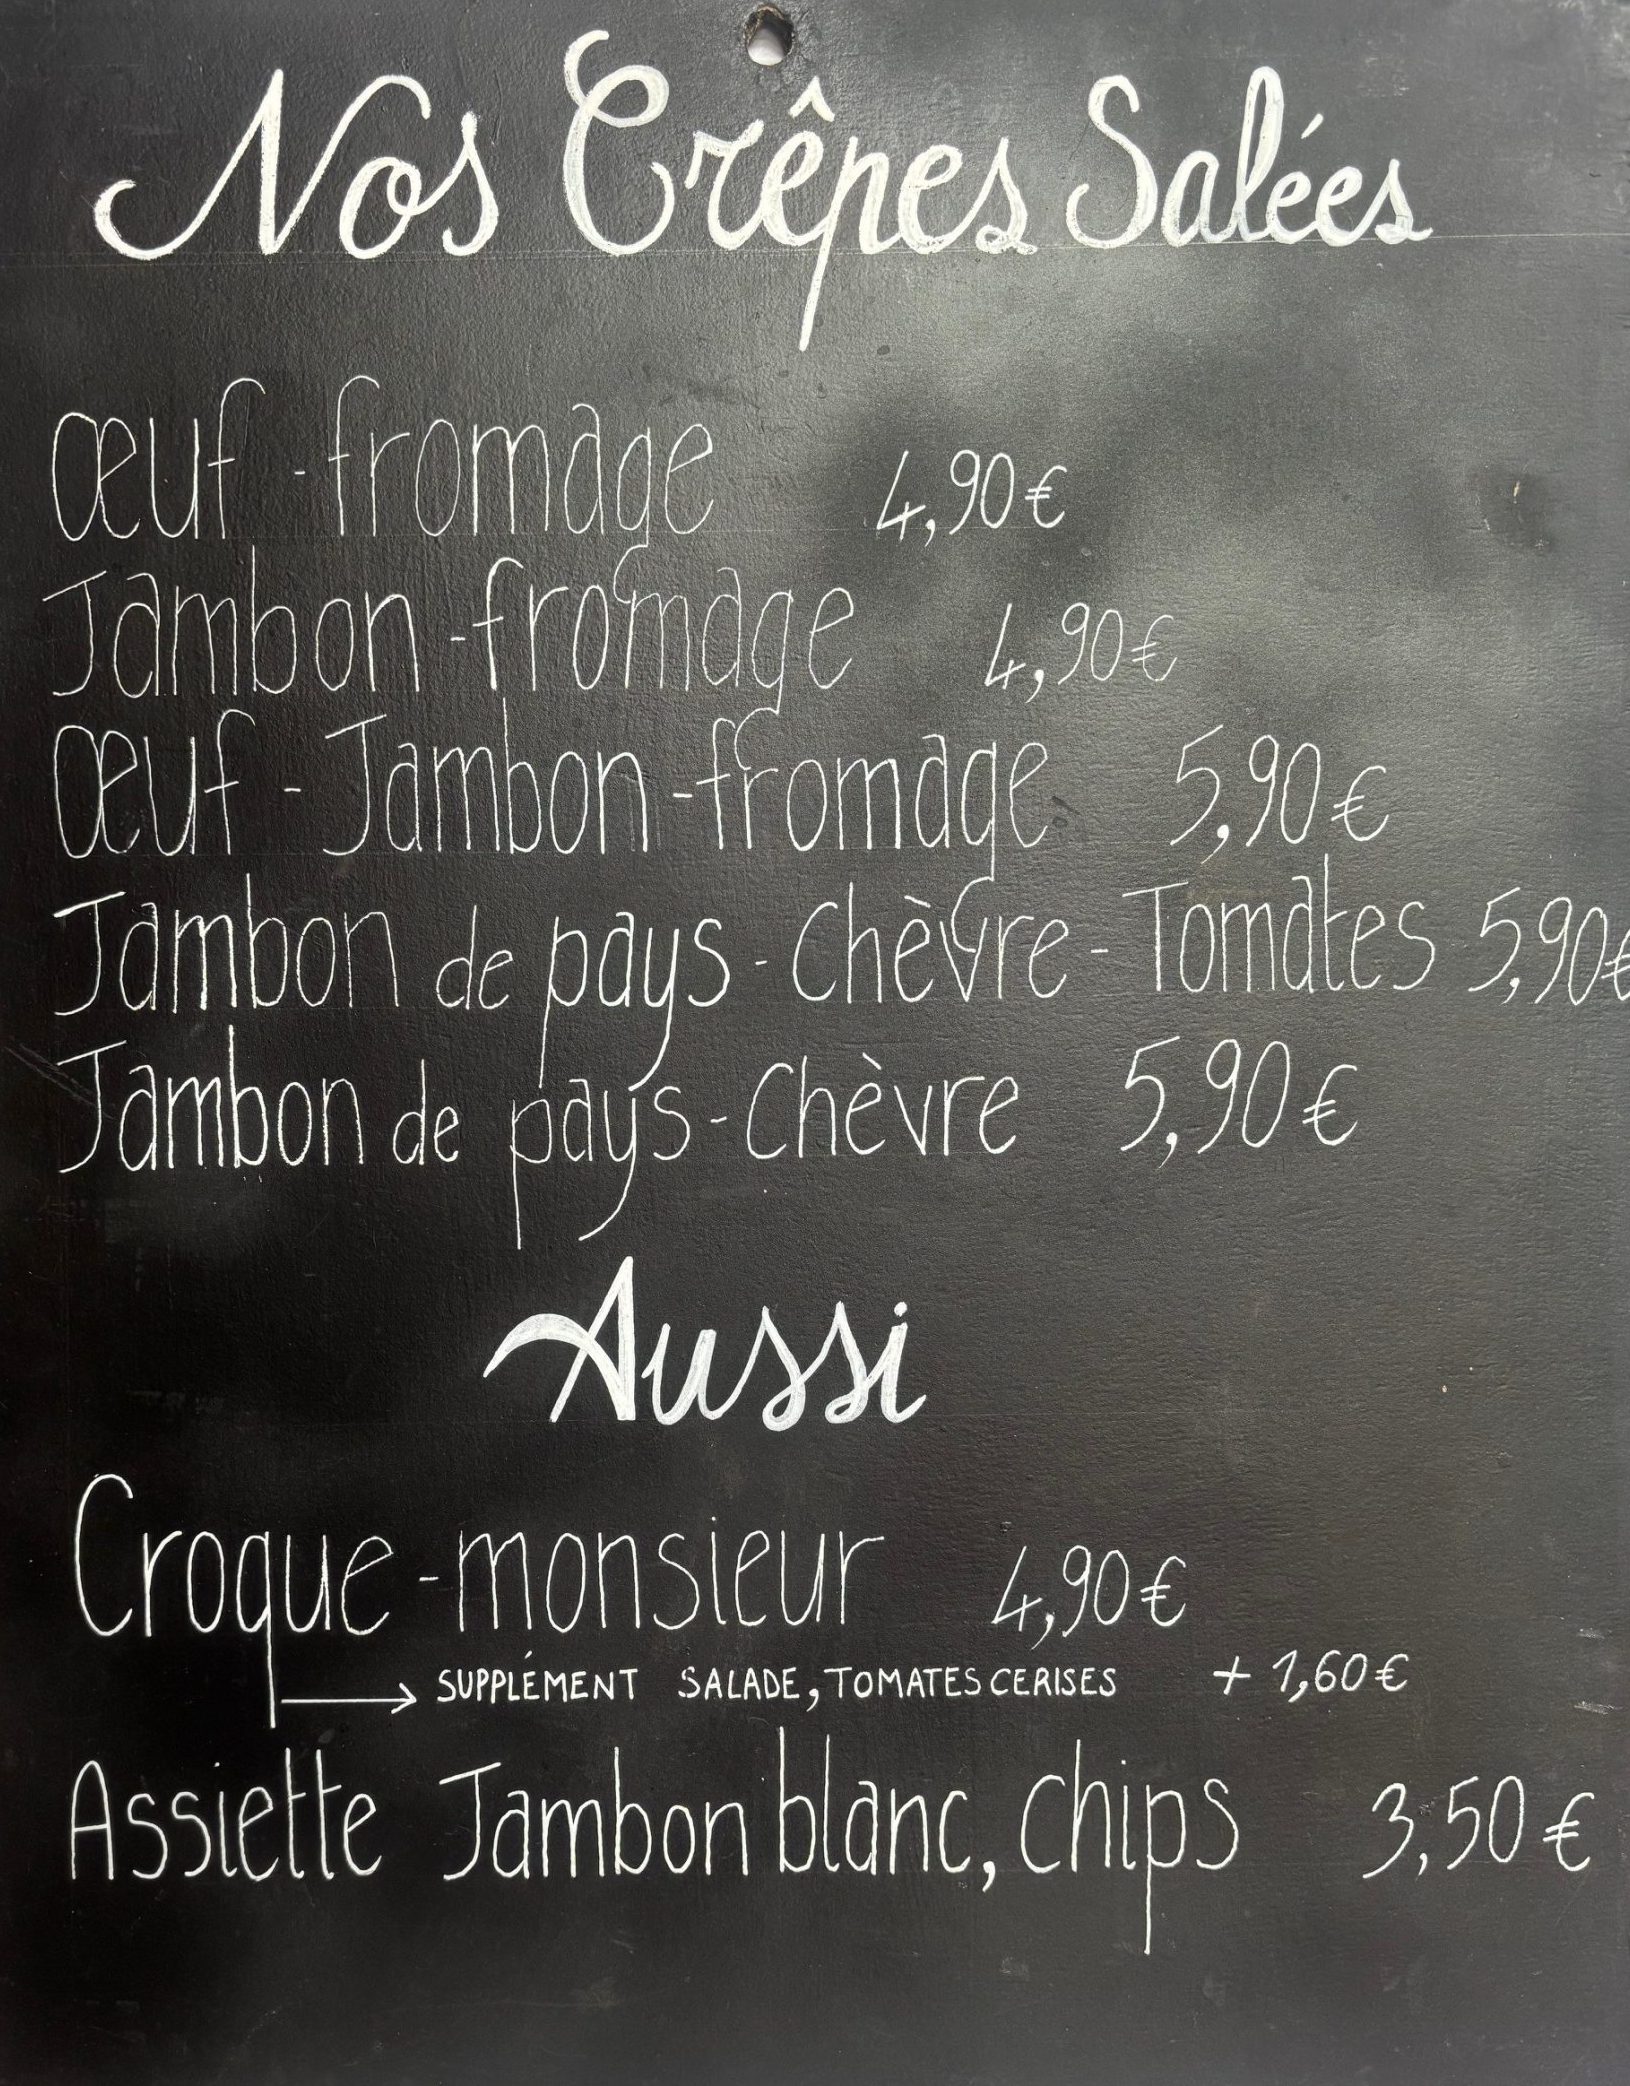 Nos Crêpes Salées
œuf - fromage 4,90€
Jambon - fromage 4,90€
œuf - Jambon - fromage 5,90€
Jambon de pays - Chèvre - Tomates 5,90€
Jambon de pays - Chèvre 5,90€
Aussi
Croque - monsieur 4,90€
→ SUPPLÉMENT SALADE, TOMATES CERISES + 1,60€
Assiette Jambon blanc, chips 3,50€